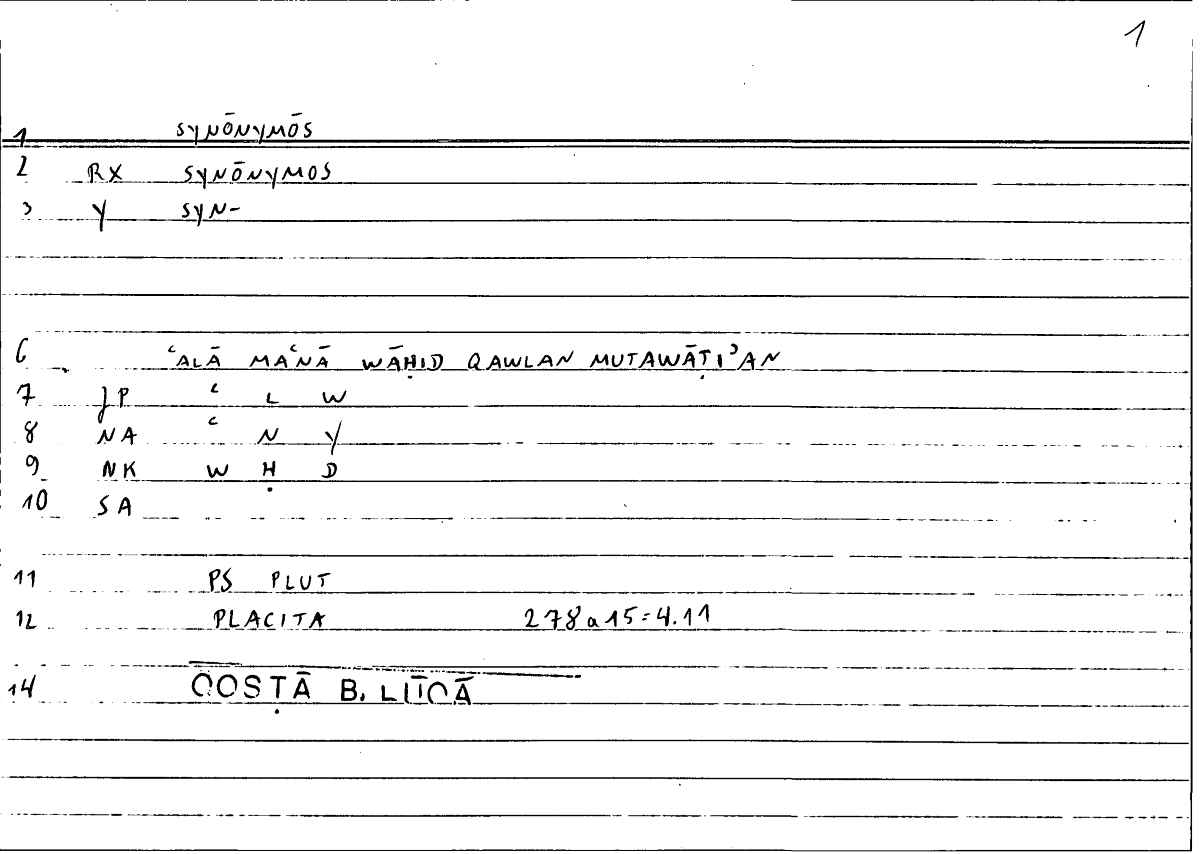 1
1 SYNŌNYMŌS
2 RX SYNŌNYMOS
3 Y SYN-
6 ʿALĀ MAʿNĀ WĀḤID QAWLAN MUTAWĀṬIʾAN
7 JP ʿ L W
8 NA ʿ N Y
9 NK W Ḥ D
10 SA
11 PS PLUT
12 PLACITA 278a15=4.11
14 QOSṬĀ B. LŪQĀ